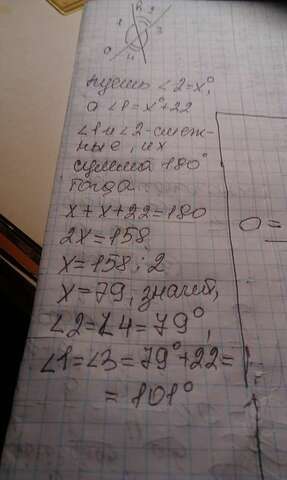 1 2 3
4
пусть ∠2=x°,
а ∠1=x°+22
∠1 и ∠2-смеж-
ные, их
сумма 180°
тогда
x+x+22=180
2x=158
x=158:2
x=79, значит,
∠2=∠4=79°,
∠1=∠3=79°+22=
=101°
0=